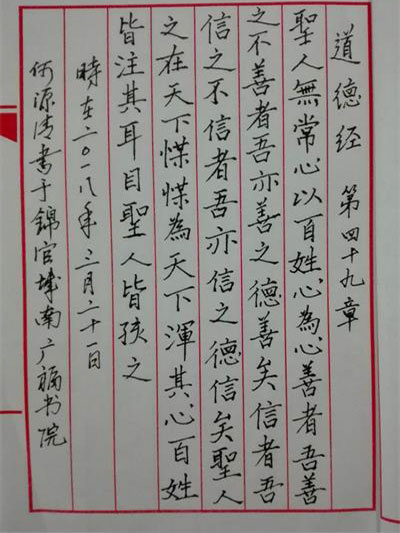 道德经 第四十九章
聖人無常心以百姓心為心善者吾善
之不善者吾亦善之德善矣信者吾
信之不信者吾亦信之德信矣聖人
之在天下惵惵為天下渾其心百姓
皆注其耳目聖人皆孩之
時在二〇一八年三月二十一日
何源清書于錦官城南广福书院